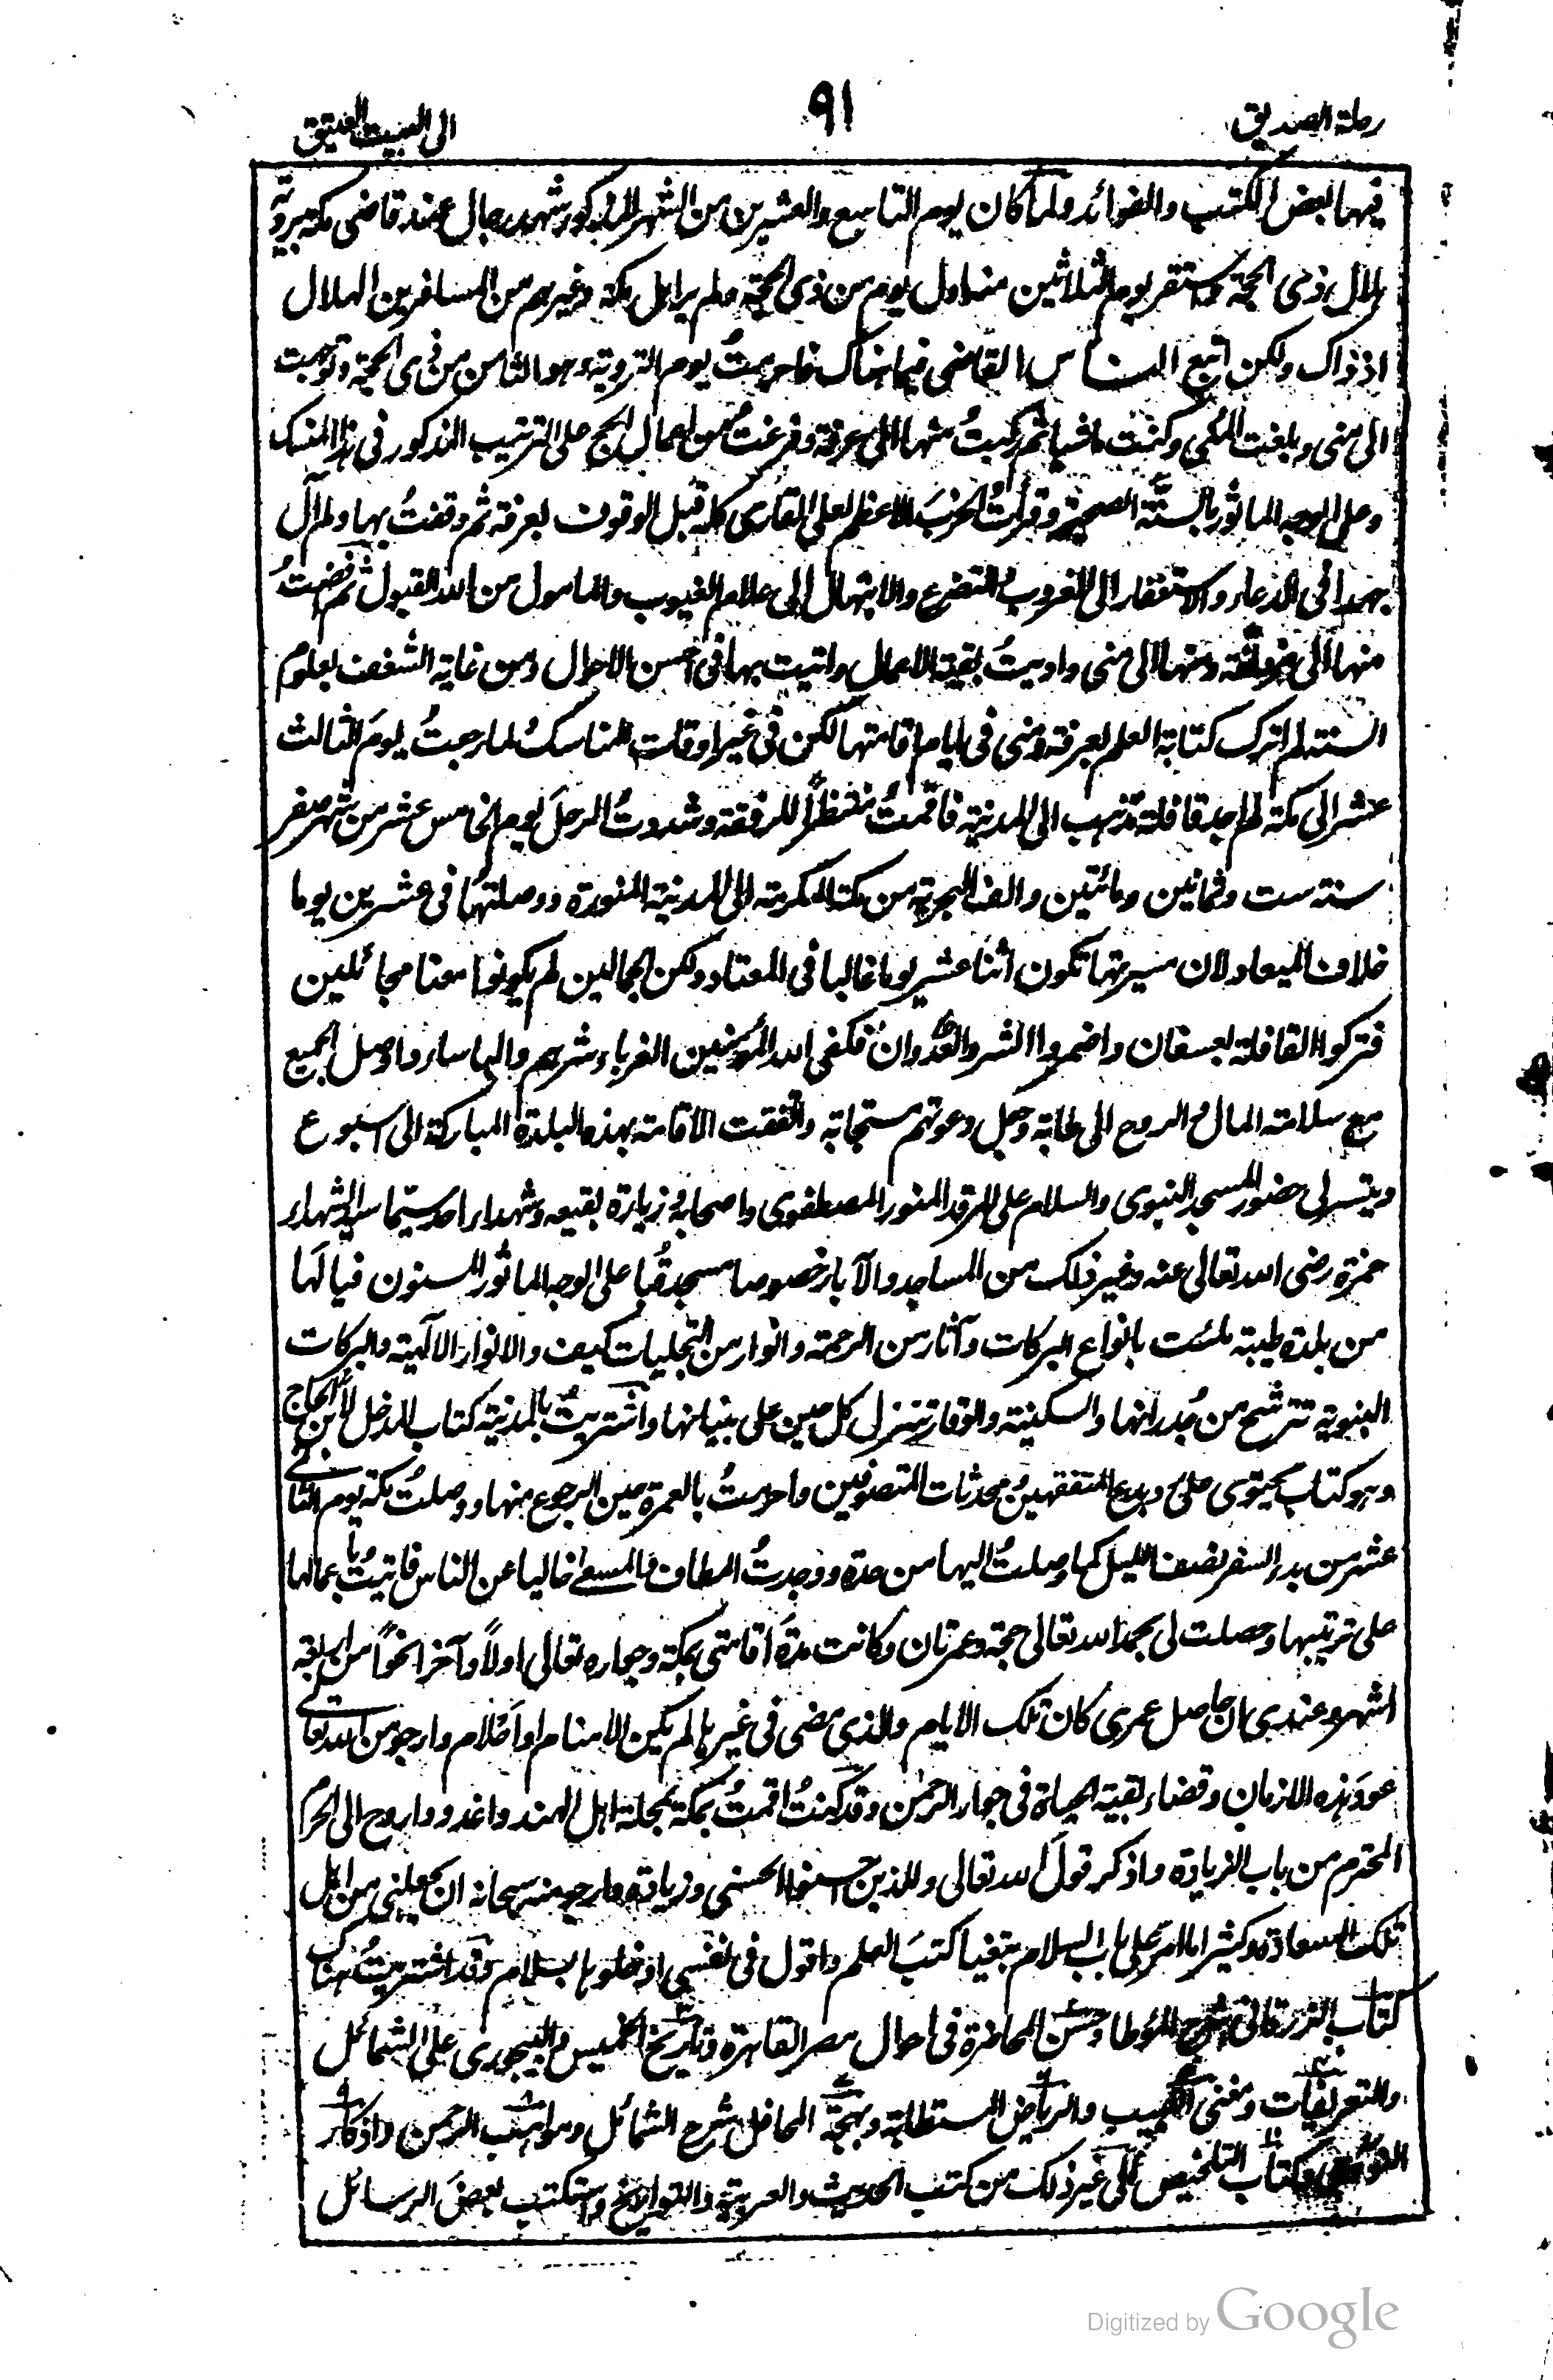 رحلة الصديق
٩١
الى البيت العتيق
فيها بعض الكتب والفوائد ولما كان يوم التاسع والعشرين من الشهر المذكور شهد رجال عند قاضي مكة برؤية
هلال ذي الحجة واستقر يوم الثلاثين منه اول يوم من ذي الحجة ولم ير اهل مكة وغيرهم من المسافرين الهلال
اذ ذاك ولكن اتبع الناس القاضي فيما هناك فاحرمتُ يوم التروية وهو الثامن من ذي الحجة وتوجهت
الى منى وبلغت المكي وكنت ماشيا ثم ركبتُ منها الى عرفة وفرغتُ من اعمال الحج على الترتيب المذكور في هذا المنسك
وعلى الوجه الماثور بالسنّة الصحيحة وقرأتُ الحزبَ الاعظم لعلي القاري كله قبل الوقوف بعرفة ثم وقفتُ بها ولم آل
جهدا في الدعاء والاستغفار الى الغروب والتضرع والابتهال الى علام الغيوب والمامول من الله القبول ثم افضتُ
منها الى مزدلفة ومنها الى منى واديتُ بقية الاعمال واتيت بها في احسن الاحوال ومن غاية الشغف بعلوم
السنة لم اترك كتابة العلم بعرفة ومنى في ايام اقامتها لكن في غير اوقات المناسك ولما رجعتُ يومَ الثالث
عشر الى مكة لم اجد قافلة تذهب الى المدينة فاقمتُ منتظرًا للرفقة وشددتُ الرحلَ يوم الخامس عشر من شهر صفر
سنة ست وثمانين ومائتين والف الهجرية من مكة المكرمة الى المدينة المنورة ووصلتها في عشرين يوما
خلاف الميعاد لان مسيرتها تكون اثنا عشر يوما غالبا في المعتاد ولكن الجمالين لم يكونوا معنا مجاملين
فتركوا القافلة بعسفان واضمروا الشر والعُدوان فكفى الله المؤمنين الغرباء شرهم والباساء واوصل الجميع
مع سلامة المال والروح الى طابة وجعل دعوتهم مستجابة واتفقت الاقامة بهذه البلدة المباركة الى اسبوع
وتيسر لي حضور المسجد النبوي والسلام على المرقد المنور المصطفوي واصحابه وزيارة بقيعه وشهداء احد سيّما سيد الشهداء
حمزة رضي الله تعالى عنه وغير ذلك من المساجد والآبار خصوصا مسجد قُبا على الوجه الماثور المسنون فيا لَها
من بلدة طيبة ملئت بانواع البركات وآثار من الرحمة وانوار من التجليات كيف والانوار الالٓهية والبركات
النبوية تترشح من جُدرانها والسكينة والوقار تتنزل كل حين على بنيانها واشتريتُ بالمدينة كتاب المدخل لابن الحاج
وهو كتاب يحتوي على رد بدع المتفقهين ومحدثات المتصوفين واحرمتُ بالعمرة حين الرجوع منها ووصلتُ مكة يوم الثاني
عشر من بدء السفر نصف الليل كما وصلتُ اليها من جدة ووجدتُ المطاف والمسعى خاليا عن الناس فاتيتُ باعمالها
على ترتيبها وحصلت لي بحمد الله تعالى حجة وعمرتان وكانت مدةَ اقامتي بمكة وجواره تعالى اولاً وآخرا نحوًا من اربعة
اشهر وعندي ان حاصل عمري كان تلك الايام والذي مضى في غيرها لم يكن الا منام او احلام وارجو من الله تعالى
عود هذه الازمان وقضاء بقية الحياة في جوار الرحمٰن وقد كنتُ اقمتُ بمكة بمحلة اهل الهند واغدو واروح الى الحرم
المحترم من باب الزيادة واذكر قولَ الله تعالى وللذين احسنوا الحسنى وزيادة وارجو منه سبحانه ان يجعلني من اهل
تلك السعادة وكثيرا ما امر على باب السلام متبغيا كتبَ العلم واقول في نفسي ادخلوها بسلام وقد اشتريتُ هناك
كتاب الزرقاني شرح الموطا وحسن المحاضرة في احوال مصر القاهرة وتاريخ الخميس والبيجوري على الشمائل
والتعريفات ومغني اللبيب والرياض المستطابة وبهجة المحافل شرح الشمائل ومواهب الرحمن واذكار
وكتاب التلخيص الى غير ذلك من كتب الحديث والعربية والتواريخ واستكتب بعضَ الرسائل
Digitized by Google